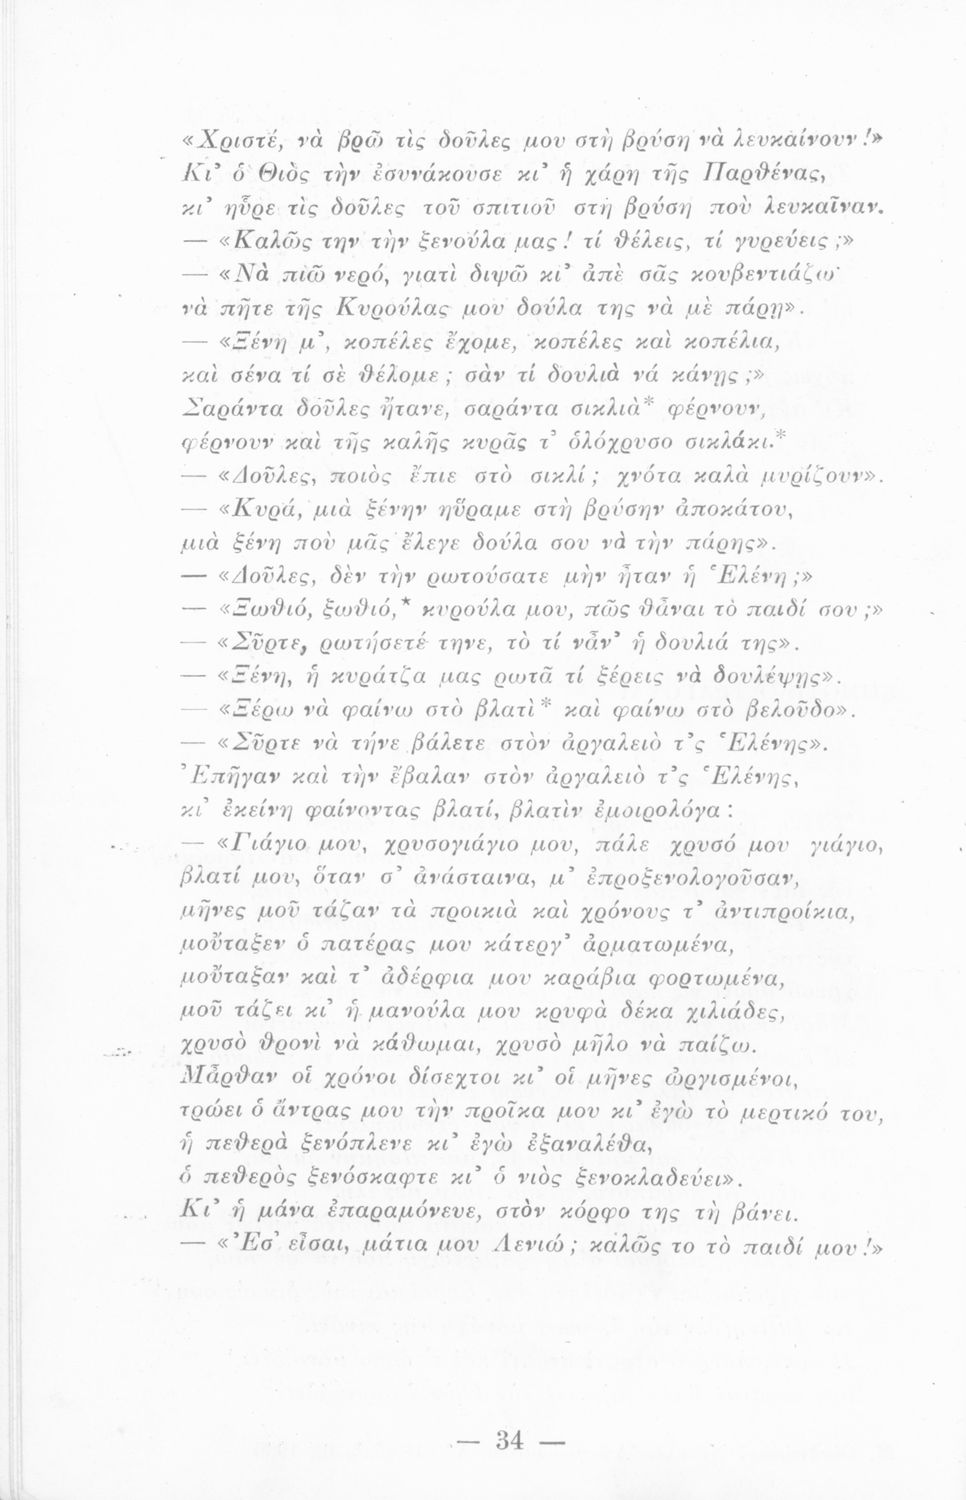 «Χριστέ, νὰ βρῶ τὶς δοῦλες μου στὴ βρύση νὰ λευκαίνουν!»
Κι’ ὁ Θιὸς τὴν ἐσυνάκουσε κι’ ἡ χάρη τῆς Παρθένας,
κι’ ηὗρε τὶς δοῦλες τοῦ σπιτιοῦ στὴ βρύση ποὺ λευκαῖναν.
— «Καλῶς την τὴν ξενούλα μας! τί θέλεις, τί γυρεύεις;»
— «Νὰ πιῶ νερό, γιατὶ διψῶ κι’ ἀπὲ σᾶς κουβεντιάζω·
νὰ πῆτε τῆς Κυρούλας μου δούλα της νὰ μὲ πάρῃ».
— «Ξένη μ’, κοπέλες ἔχομε, κοπέλες καὶ κοπέλια,
καὶ σένα τί σὲ θέλομε; σὰν τί δουλιὰ νά κάνῃς;»
Σαράντα δοῦλες ἤτανε, σαράντα σικλιὰ* φέρνουν,
φέρνουν καὶ τῆς καλῆς κυρᾶς τ’ ὁλόχρυσο σικλάκι.*
— «Δοῦλες, ποιὸς ἔπιε στὸ σικλί; χνότα καλὰ μυρίζουν».
— «Κυρά, μιὰ ξένην ηὕραμε στὴ βρύσην ἀποκάτου,
μιὰ ξένη ποὺ μᾶς ἔλεγε δούλα σου νὰ τὴν πάρῃς».
— «Δοῦλες, δὲν τὴν ρωτούσατε μὴν ἦταν ἡ Ἑλένη;»
— «Ξωθιό, ξωθιό,* κυρούλα μου, πῶς θἆναι τὸ παιδί σου;»
— «Σῦρτε, ρωτήσετέ τηνε, τὸ τί νἆν’ ἡ δουλιά της».
— «Ξένη, ἡ κυράτζα μας ρωτᾶ τί ξέρεις νὰ δουλέψῃς».
— «Ξέρω νὰ φαίνω στὸ βλατὶ* καὶ φαίνω στὸ βελοῦδο».
— «Σῦρτε νὰ τήνε βάλετε στὸν ἀργαλειὸ τ’ς Ἑλένης».
Ἐπῆγαν καὶ τὴν ἔβαλαν στὸν ἀργαλειὸ τ’ς Ἑλένης,
κι’ ἐκείνη φαίνοντας βλατί, βλατὶν ἐμοιρολόγα:
— «Γιάγιο μου, χρυσογιάγιο μου, πάλε χρυσό μου γιάγιο,
βλατί μου, ὅταν σ’ ἀνάσταινα, μ’ ἐπροξενολογοῦσαν,
μῆνες μοῦ τάζαν τὰ προικιὰ καὶ χρόνους τ’ ἀντιπροίκια,
μοὔταξεν ὁ πατέρας μου κάτεργ’ ἀρματωμένα,
μοὔταξαν καὶ τ’ ἀδέρφια μου καράβια φορτωμένα,
μοῦ τάζει κι’ ἡ μανούλα μου κρυφὰ δέκα χιλιάδες,
χρυσὸ θρονὶ νὰ κάθωμαι, χρυσὸ μῆλο νὰ παίζω.
Μἆρθαν οἱ χρόνοι δίσεχτοι κι’ οἱ μῆνες ὡργισμένοι,
τρώει ὁ ἄντρας μου τὴν προῖκα μου κι’ ἐγὼ τὸ μερτικό του,
ἡ πεθερὰ ξενόπλενε κι’ ἐγὼ ἐξαναλέθα,
ὁ πεθερὸς ξενόσκαφτε κι’ ὁ νιὸς ξενοκλαδεύει».
Κι’ ἡ μάνα ἐπαραμόνευε, στὸν κόρφο της τὴ βάνει.
— «Ἐσ’ εἶσαι, μάτια μου Λενιώ; καλῶς το τὸ παιδί μου!»
— 34 —